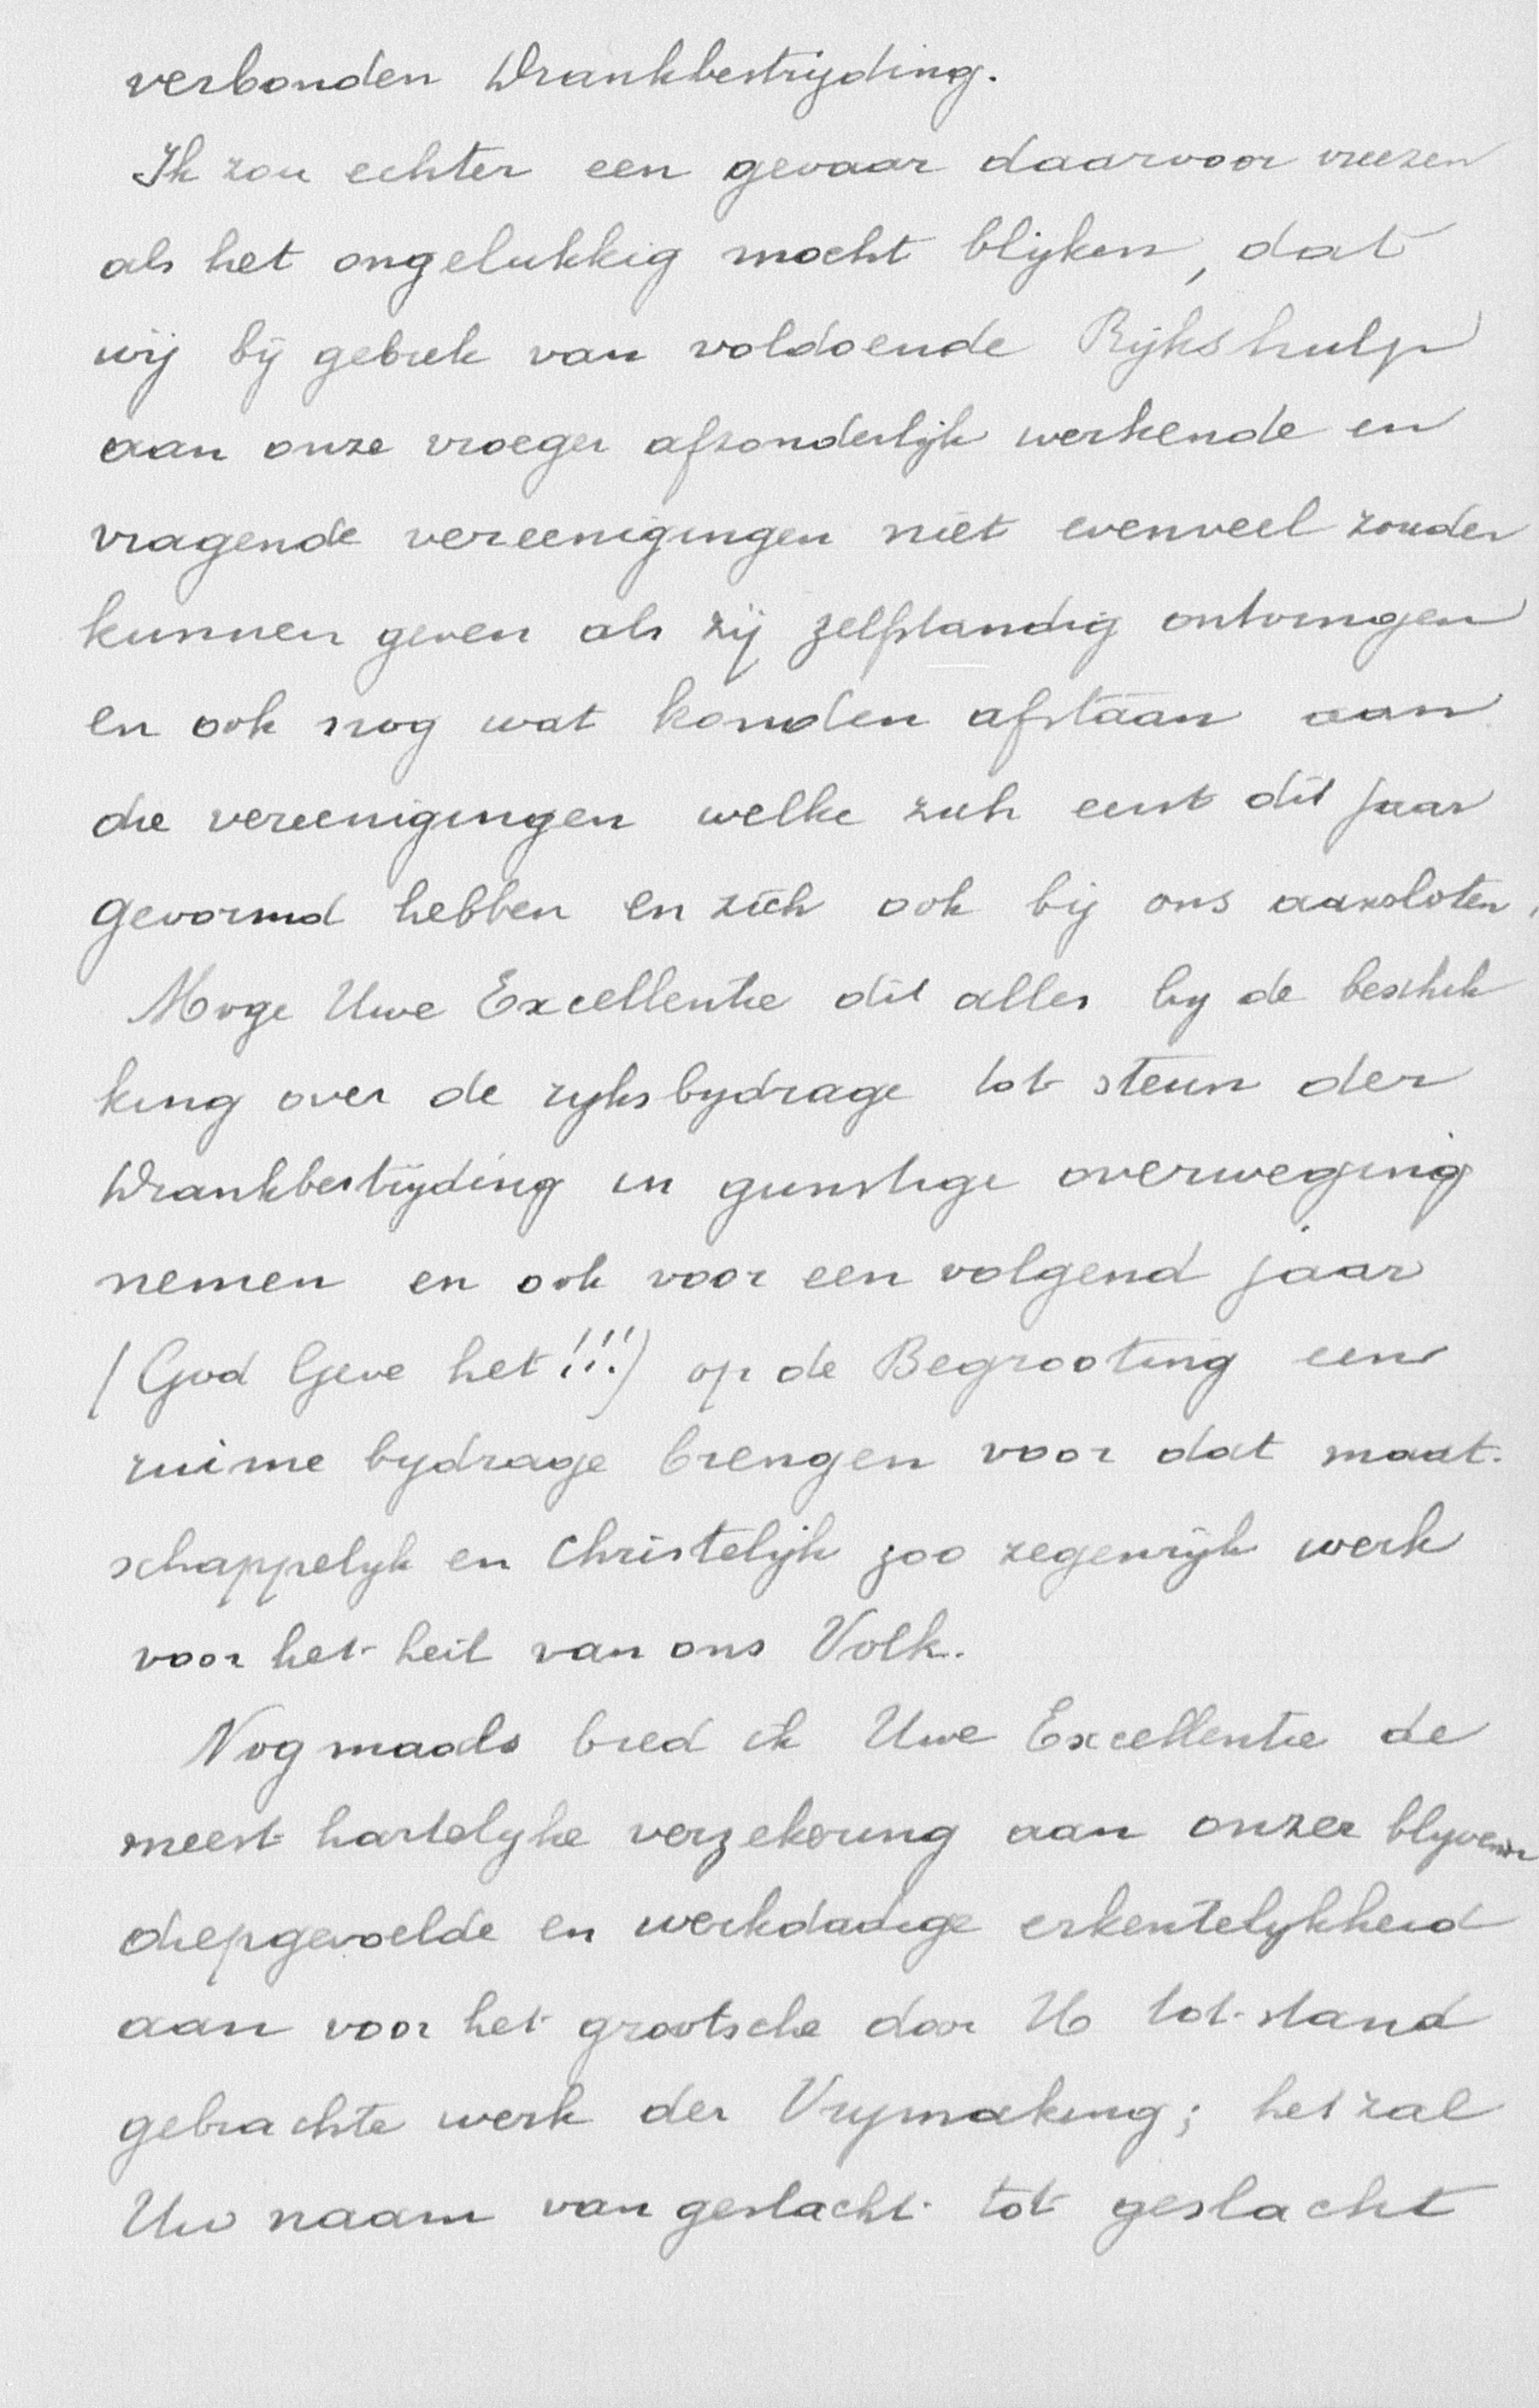 verbonden Drankbestrijding.
Ik zou echter een gevaar daarvoor vreezen
als het ongelukkig mocht blijken, dat
wij bij gebrek van voldoende Rijkshulp
aan onze vroeger afzonderlijk werkende en
vragende vereenigingen niet evenveel zouden
kunnen geven als zij zelfstandig ontvingen
en ook nog wat konden afstaan aan
die vereenigingen welke zich eerst dit jaar
gevormd hebben en zich ook bij ons aansloten.
Moge Uwe Excellentie dit alles bij de beschik
king over de rijksbijdrage tot steun der
Drankbestrijding in gunstige overweging
nemen en ook voor een volgend jaar
(God Geve het!!!) op de Begrooting een
ruime bijdrage brengen voor dat maat-
schappelijk en Christelijk zoo zegenrijk werk
voor het heil van ons Volk.
Nogmaals bied ik Uwe Excellentie de
meest hartelijke verzekering aan onzer blijvende
diepgevoelde en werkdadige erkentelijkheid
aan voor het grootsche door U tot stand
gebrachte werk der Vrijmaking; het zal
Uw naam van geslacht tot geslacht